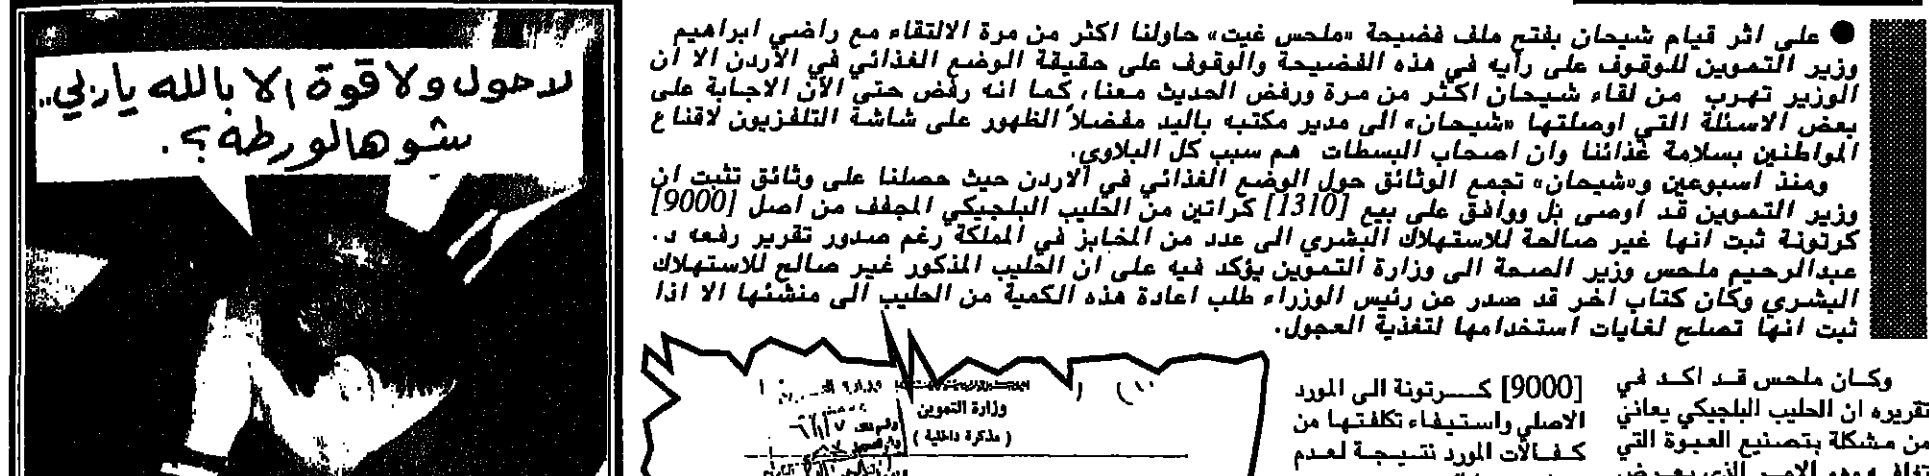 ● على اثر قيام شيحان بفتح ملف فضيحة «ملحس غيت» حاولنا اكثر من مرة الالتقاء مع راضي ابراهيم
وزير التموين للوقوف على رأيه في هذه الفضيحة والوقوف على حقيقة الوضع الغذائي في الأردن الا ان
الوزير تهرب من لقاء شيحان اكثر من مرة ورفض الحديث معنا، كما انه رفض حتى الآن الاجابة على
بعض الاسئلة التي اوصلتها «شيحان» الى مدير مكتبه باليد مفضلاً الظهور على شاشة التلفزيون لاقناع
المواطنين بسلامة غذائنا وان اصحاب البسطات هم سبب كل البلاوي.
ومنذ اسبوعين و«شيحان» تجمع الوثائق حول الوضع الغذائي في الاردن حيث حصلنا على وثائق تثبت ان
وزير التموين قد اوصى بل ووافق على بيع [1310] كراتين من الحليب البلجيكي المجفف من اصل [9000]
كرتونة ثبت انها غير صالحة للاستهلاك البشري الى عدد من المخابز في المملكة رغم صدور تقرير رفعه د.
عبدالرحيم ملحس وزير الصحة الى وزارة التموين يؤكد فيه على ان الحليب المذكور غير صالح للاستهلاك
البشري وكان كتاب اخر قد صدر عن رئيس الوزراء طلب اعادة هذه الكمية من الحليب الى منشئها الا اذا
ثبت انها تصلح لغايات استخدامها لتغذية العجول.
وكان ملحس قد اكد في
تقريره ان الحليب البلجيكي يعاني
من مشكلة بتصنيع العبوة التي
[9000] كرتونة الى المورد
الاصلي واستيفاء تكلفتها من
كفالات المورد نتيجة لعدم
وزارة التموين
( مذكرة داخلية )
لاحول ولا قوة الا بالله ياربي..
شو هالورطه ؟.